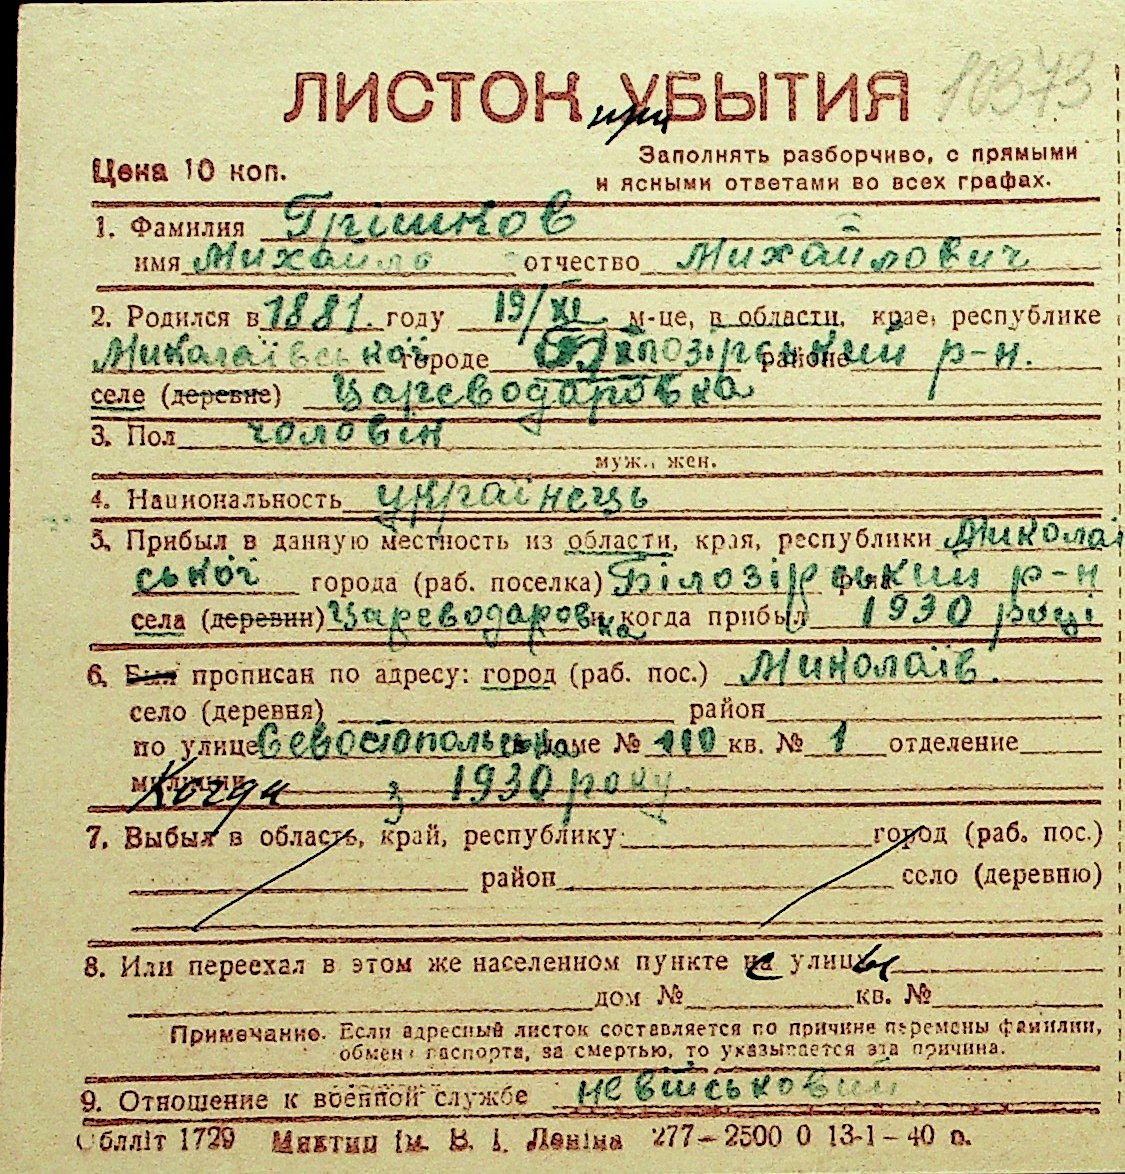 10373
ЛИСТОК УБЫТИЯ
при
Цена 10 коп.
Заполнять разборчиво, с прямыми
и ясными ответами во всех графах.
1. Фамилия Грішков
имя Михайло отчество Михайлович
2. Родился в 1881. году 19/XI м-це, в области, крае, республике
Миколаївської городе Білозірський районе р-н.
селе (деревне) Цареводаровка
3. Пол чоловік
муж., жен.
4. Национальность українець
5. Прибыл в данную местность из области, края, республики Миколаї
ської города (раб. поселка) Білозірський р-н
села (деревни) Цареводаровка когда прибыл 1930 році
6. Был прописан по адресу: город (раб. пос.) Миколаїв.
село (деревня) район
по улице Севостопольська доме № 110 кв. № 1 отделение
милиции Когда з 1930 року.
7. Выбыл в область, край, республику город (раб. пос.)
район село (деревню)
8. Или переехал в этом же населенном пункте с улицы
дом № кв. №
Примечание. Если адресный листок составляется по причине перемены фамилии,
обмена паспорта, за смертью, то указывается эта причина.
9. Отношение к военной службе невійськовий
Облліт 1729 Миктип ім. В. І. Леніна 277–2500 0 13-1–40 п.